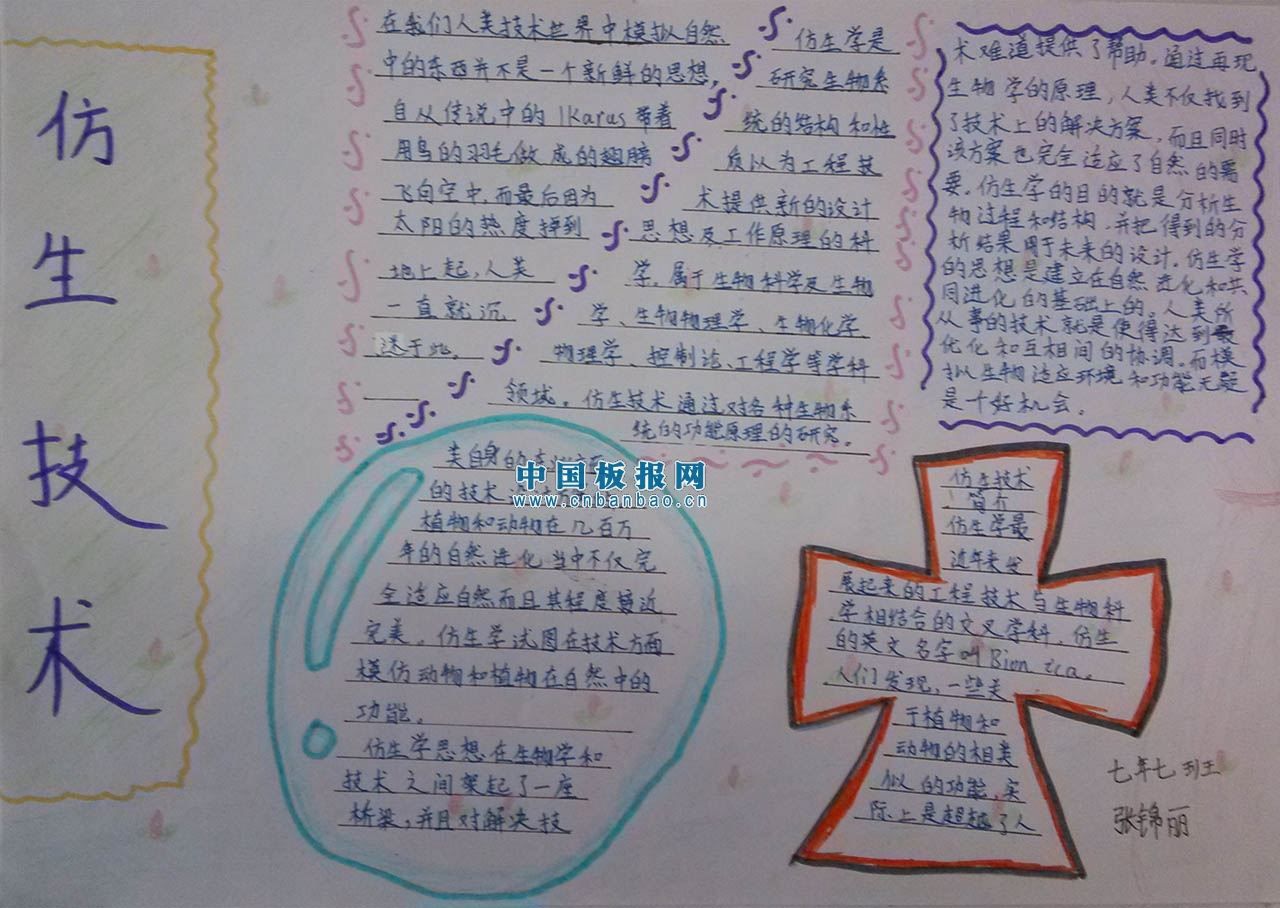 仿生技术
在我们人类技术世界中模拟自然
中的东西并不是一个新鲜的思想，
自从传说中的Ikarus带着
用鸟的羽毛做成的翅膀
飞向空中，而最后因为
太阳的热度掉到
地上起，人类
一直就沉
迷于此。
仿生学是
研究生物系
统的结构和性
质以为工程技
术提供新的设计
思想及工作原理的科
学，属于生物科学及生物
学、生物物理学、生物化学
物理学、控制论、工程学等学科
领域。仿生技术通过对各种生物系
统的功能原理的研究。
仿生技术
简介
仿生学最
近年来发
展起来的工程技术与生物科
学相结合的交叉学科，仿生
的英文名字叫Bion ica。
人们发现，一些关
于植物和
动物的相类
似的功能，实
际上是超越了人
类自身的
的技术
植物和动物在几百万
年的自然进化当中不仅完
全适应自然而且其程度接近
完美。仿生学试图在技术方面
模仿动物和植物在自然中的
功能。
仿生学思想在生物学和
技术之间架起了一座
桥梁，并且对解决技
术难道提供了帮助。通过再现
生物学的原理，人类不仅找到
了技术上的解决方案，而且同时
该方案也完全适应了自然的需
要。仿生学的目的就是分析生
物过程和结构，并把得到的分
析结果用于未来的设计。仿生学
的思想是建立在自然进化和共
同进化的基础上的。人类所
从事的技术就是使得达到最
优化和互相间的协调。而模
拟生物适应环境和功能无疑
是个好机会。
七年七班
张锦丽
中国板报网
www.cnbanbao.cn